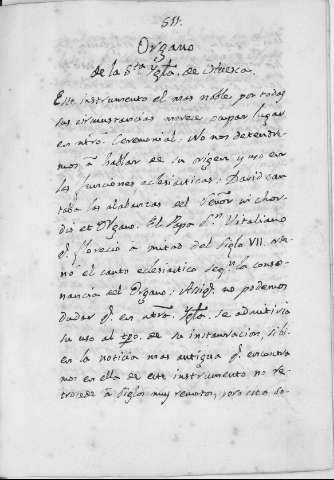 511.
Organo
de la Sta Ygla. de Huesca.
Este instrumento el mas noble por todas
sus circunstancias merece ocupar lugar
en ntro. Ceremonial. No nos detendre-
mos â hablar de su origen y uso en
las funciones eclesiasticas. David can-
taba las alabanzas del Señor in chor-
dis et Organo. El Papa Sn. Vitaliano
q. floreciô a mitad del siglo VII. orde-
nô el canto eclesiastico segn. la conso-
nancia del Organo; Assiq. no podemos
dudar q. en ntra. Ygla. se admitiria
su uso al tpo. de su instauracion, si bi-
en la noticia mas antigua q. encontra-
mos en ella de este instrumento no re-
trocede â siglos muy remotos, pero esta so-